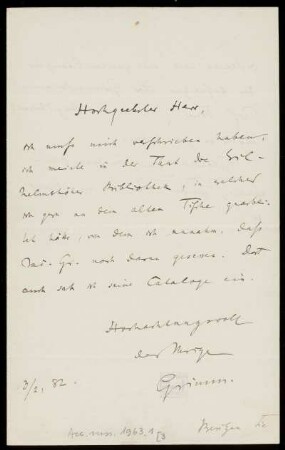 Hochgeehrter Herr,
ich muß mich verschrieben haben,
ich meinte in der That die Wil-
helmshöher Bibliothek, in welcher
ich gern an dem alten Tische gearbei-
tet hätte, von dem ich annahm, daß
Jac. Gr. noch daran gesessen. Dort
auch sah ich seine Cataloge ein.
Hochachtungsvoll
der Ihrige
Grimm.
3/2. 82.
Acc. mss. 1963. 1